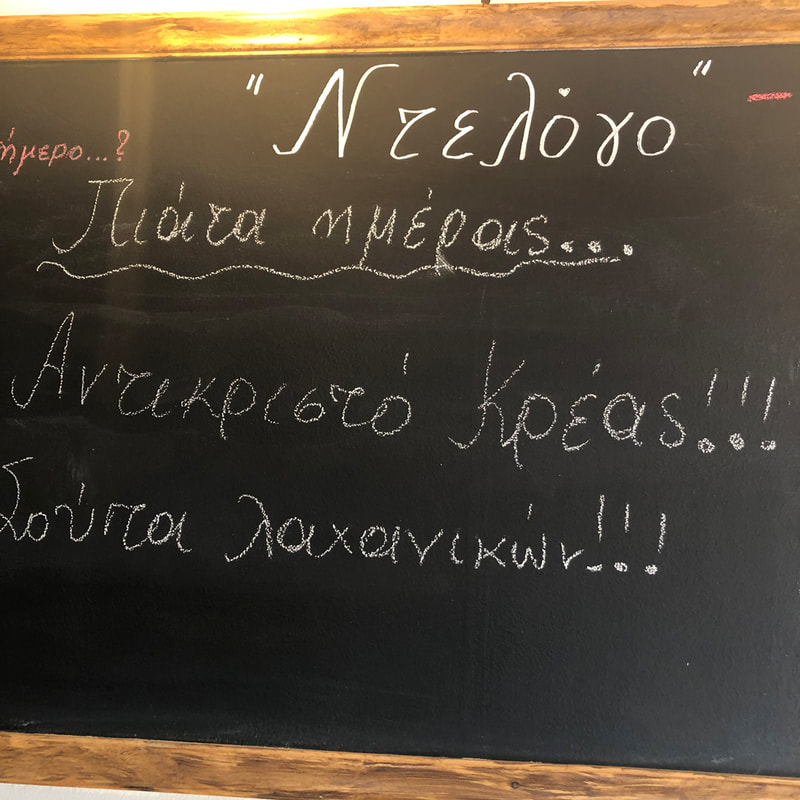 "Ντελόγο" -
ήμερο...?
Πιάτα ημέρας...
Αντικριστό Κρέας!!!
Σούπα λαχανικών!!!